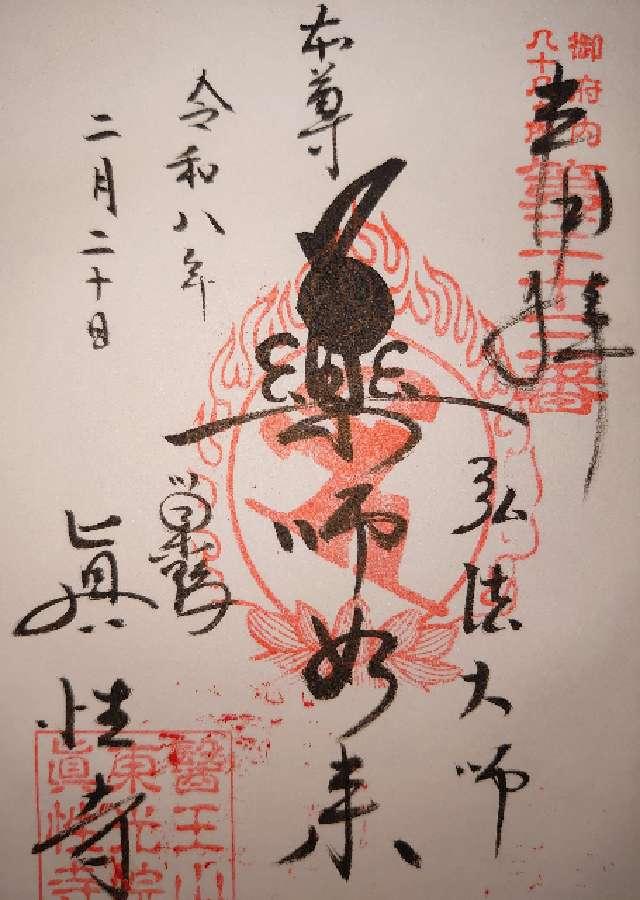 奉拝
御府内
八十八ヶ所
第二十三番
弘法大師
本尊
薬師如来
令和八年
二月二十日
巣鴨
眞性寺
醫王山
東光院
眞性寺